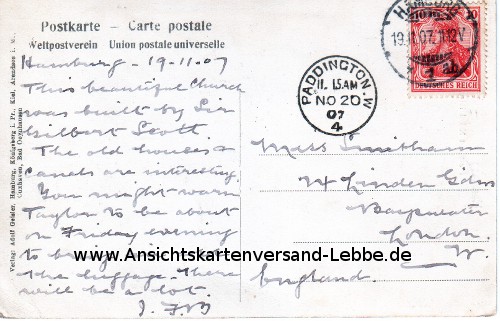 Postkarte – Carte postale
Weltpostverein Union postale universelle
Hamburg - 19-11-07
This beautiful Church
was built by Sir
Gilbert Scott
The old houses &
canals are interesting.
You might warn
Taylor to be about
on Friday evening
to bring in
the luggage. There
will be a lot.
HAMBURG
19.11.07. 11-12V
10
DEUTSCHES REICH
PADDINGTON. W
11. 15AM
NO 20
07
4
Miss Smitham
14 Linden Gdns
Bayswater
London
W.
England.
Verlag: Adolf Geisler, Hamburg, Königsberg i. Pr., Kiel,
Cuxhaven, Bad Oeynhausen
www.Ansichtskartenversand-Lebbe.de